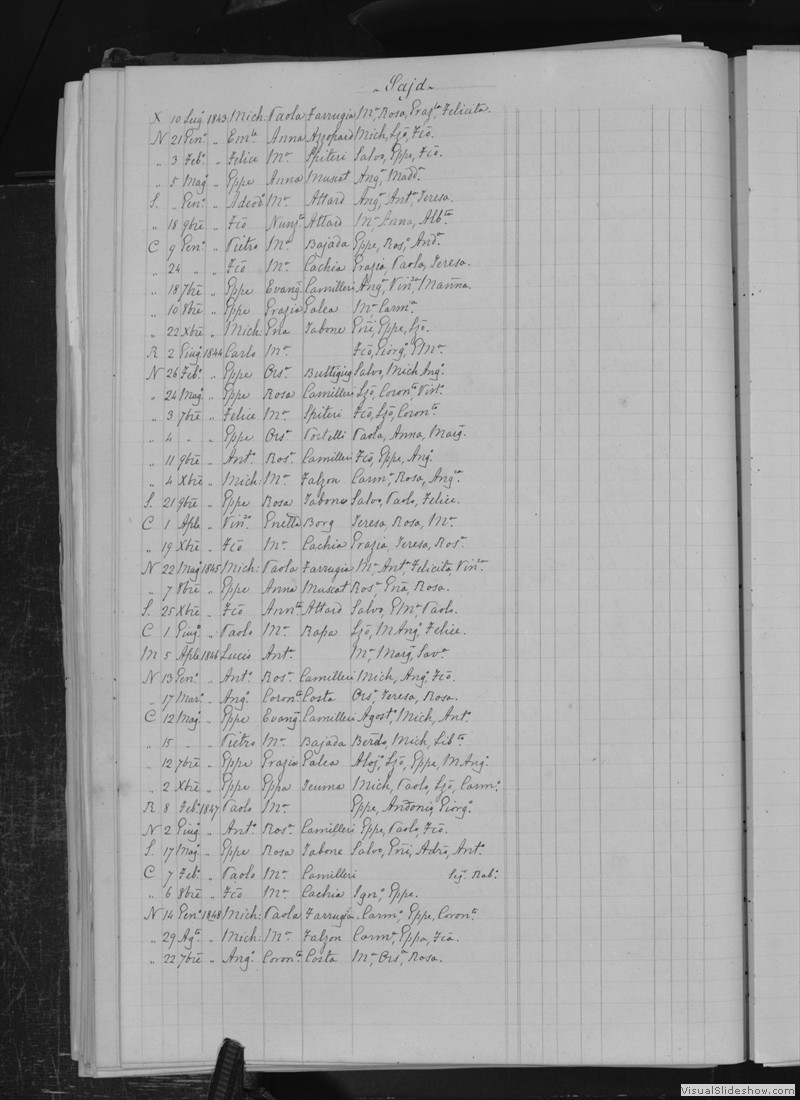 Sajd
X 10 Lug. 1843 Mich: Paola Farrugia Mª, Rosa, Grazia, Felicita.
N 21 Genº „ Emle Anna Azzopard Mich, Ljō, Fcō.
„ 3 Febº „ Felice Mª Spiteri Salvo, Eppe, Fcō.
„ 5 Magº „ Eppe Anna Muscat Angª, Madª
S. „ Genº „ Adeodº Mª Attard Angª, Antª, Teresa.
„ 18 9bre „ Fcō Nunzta Attard Mª, Anna,
C 9 Genº „ Pietro Mª Bajada Eppe, Rosª, Andª
„ 24 „ „ Fcō Mª Cachia Grazia, Paola, Teresa.
„ 18 7bre „ Eppe Evang. Camilleri Angª, Vinza, Marina.
„ 10 8bre „ Eppe Grazia Galea Mª, Carmª
„ 22 Xbre „ Mich: Gna Tabone Gni, Eppe, Ljō.
R 2 Giugº 1844 Carlo Mª Fcō, Giorgº, GMª
N 26 Febº „ Eppe Orsª Buttigieg Salvo, Mich, Angº
„ 24 Magº „ Eppe Rosa Camilleri Ljō, Coronta,
„ 3 7bre „ Felice Mª Spiteri Fcō, Ljō, Coronta
„ 4 „ „ Eppe Orsª Portelli Paola, Anna, Marg.
„ 11 9bre „ Antº Rosª Camilleri Fcō, Eppe, Angº
„ 4 Xbre „ Mich: Mª Falzon Carmª, Rosa, Angla
S. 21 9bre „ Eppe Rosa Tabone Salvo, Paolo, Felice.
C 1 Aple „ Vinzo Gnetta Borg Teresa, Rosa, Mª
„ 19 Xbre „ Fcō Mª Cachia Grazia, Teresa, Rosª
N 22 Magº 1845 Mich: Paola Farrugia Mª, Antª, Felicita, Vinza
„ 7 8bre „ Eppe Anna Muscat Rosª, Gna, Rosa.
S. 25 Xbre „ Fcō Annta Attard Salvo, GMª, Paolo.
C 1 Giugº „ Paolo Mª Rapa Ljō, MAngº, Felice.
M 5 Aple 1846 Lucio Antª Mª, Marg, Savª
N 13 Genº „ Antº Rosª Camilleri Mich, Angº, Fcō.
„ 17 Marº „ Angº Coronta Costa Orsª, Teresa, Rosa.
C 12 Magº „ Eppe Evang. Camilleri Agostº, Mich, Antº
„ 15 „ „ Pietro Mª Bajada Berdo, Mich, Libta
„ 12 7bre „ Eppe Grazia Galea Alojº, Ljō, Eppe, MAngº
„ 2 Xbre „ Eppe Eppa Teuma Mich, Paolo, Ljō, Carmº
R 8 Febº 1847 Paolo Mª Eppe, Andonio, Giorgº
N 2 Giugº „ Antº Rosª Camilleri Eppe, Paolo, Fcō.
S. 17 Magº „ Eppe Rosa Tabone Salvo, Gni, Adro, Antº
C 7 Febº „ Paolo Mª Camilleri Rab:
„ 6 8bre „ Fcō Mª Cachia Ignº, Eppe.
N 14 Genº 1848 Mich: Paola Farrugia Carmº, Eppe, Coronta
„ 29 Agto „ Mich: Mª Falzon Carmª, Eppa, Fca.
„ 22 7bre „ Angº Coronta Costa Mª, Orsª, Rosa.
VisualSlideshow.com